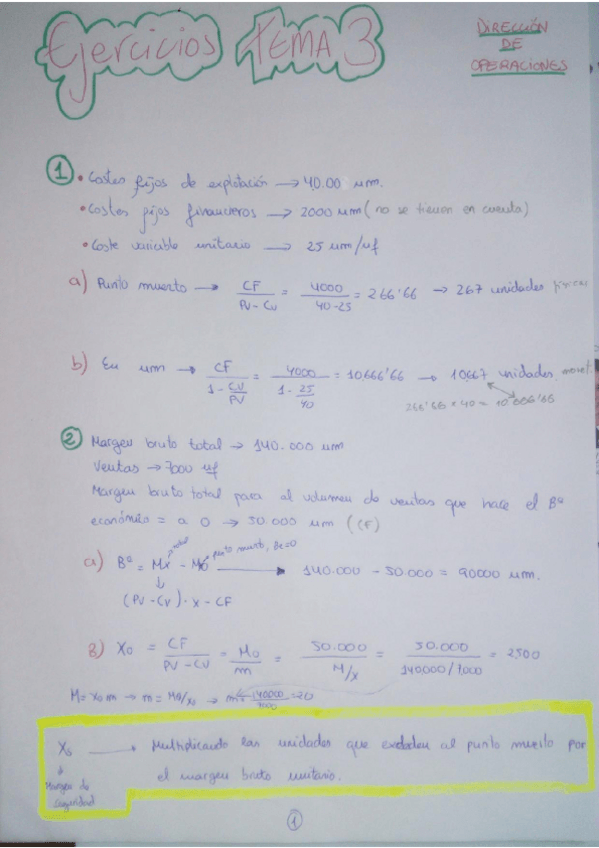 Ejercicios TEMA 3
DIRECCIÓN
DE
OPERACIONES
1 • Costes fijos de explotación → 40.00 um.
• Costes fijos financieros → 2000 um (no se tienen en cuenta)
• Coste variable unitario → 25 um/uf
a) Punto muerto → CF / PV - CV = 4000 / 40-25 = 266'66 → 267 unidades físicas
b) En um → CF / 1 - CV/PV = 4000 / 1 - 25/40 = 10,666'66 → 10,667 unidades monet.
266'66 × 40 = 10'666'66
2 Margen bruto total → 140.000 um
Ventas → 7000 uf
Margen bruto total para al volumen de ventas que hace el Bº
económico = a 0 → 50.000 um (CF)
a) Bº = Mx - Mo → 140.000 - 50.000 = 90000 um.
punto muerto, Be=0
(PV-CV) · x - CF
B) Xo = CF / PV - CV = Mo / m = 50.000 / M/x = 50.000 / 140,000/7000 = 2500
M = xo m → m = Mo/xo → m = 140000/7000 = 20
Xo → Multiplicando las unidades que exceden al punto muerto por
el margen bruto unitario.
Margen de
seguridad
1